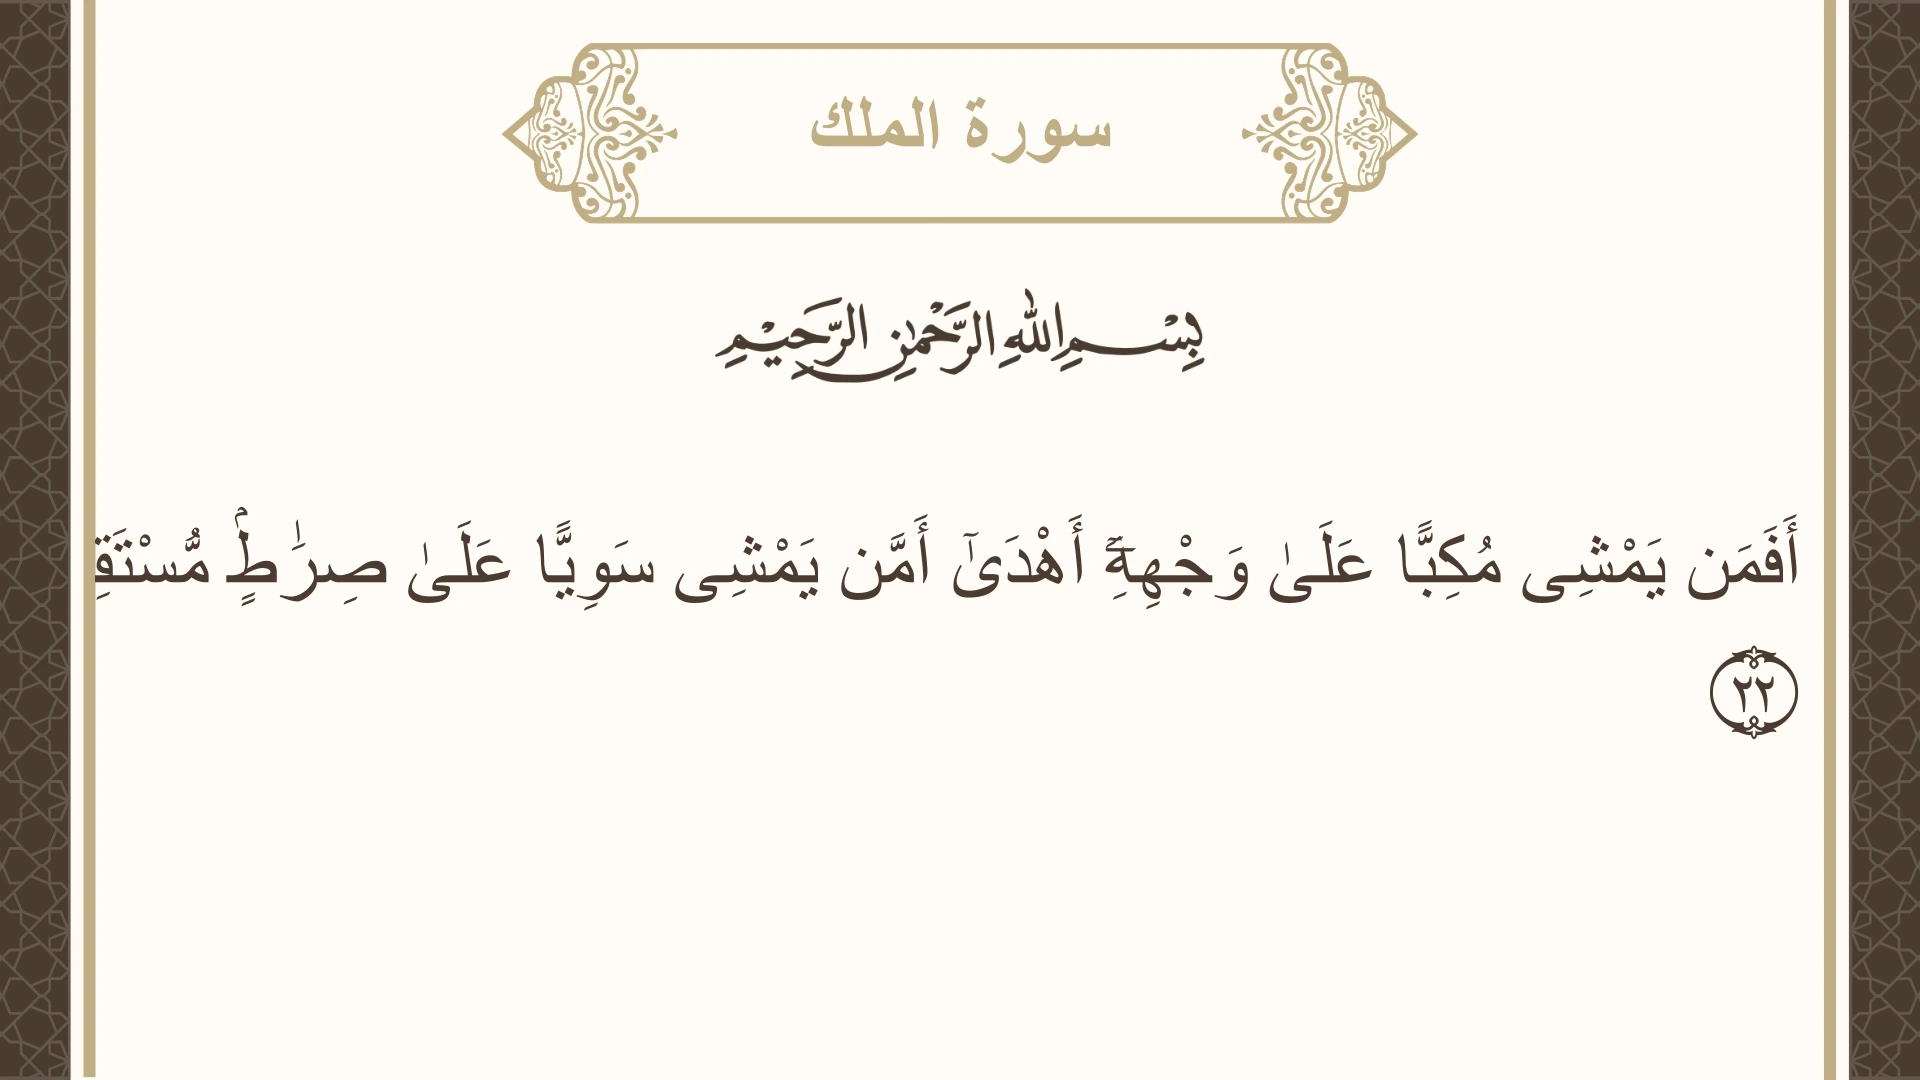 سورة الملك
بِسْمِ اللهِ الرَّحْمٰنِ الرَّحِيْمِ
أَفَمَن يَمْشِى مُكِبًّا عَلَىٰ وَجْهِهِۦٓ أَهْدَىٰٓ أَمَّن يَمْشِى سَوِيًّا عَلَىٰ صِرَٰطٍۢ
٢٢